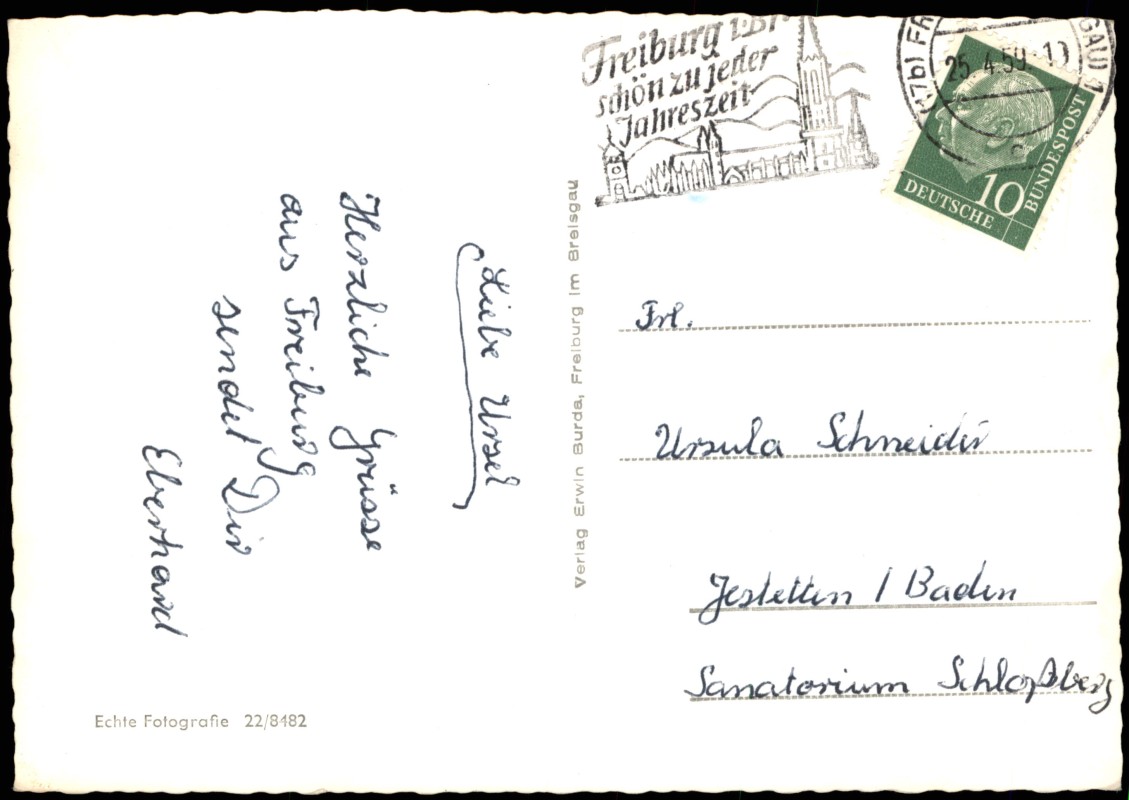 Liebe Ursel
Herzliche Grüsse
aus Freiburg
sendet Dir
Eberhard
Echte Fotografie 22/8482
Verlag Erwin Burda, Freiburg im Breisgau
Freiburg i. Br.
schön zu jeder
Jahreszeit
(17b) FR
GAU) 1
25.4.59.-10
10
DEUTSCHE
BUNDESPOST
Frl.
Ursula Schneider
Jestetten / Baden
Sanatorium Schloßberg